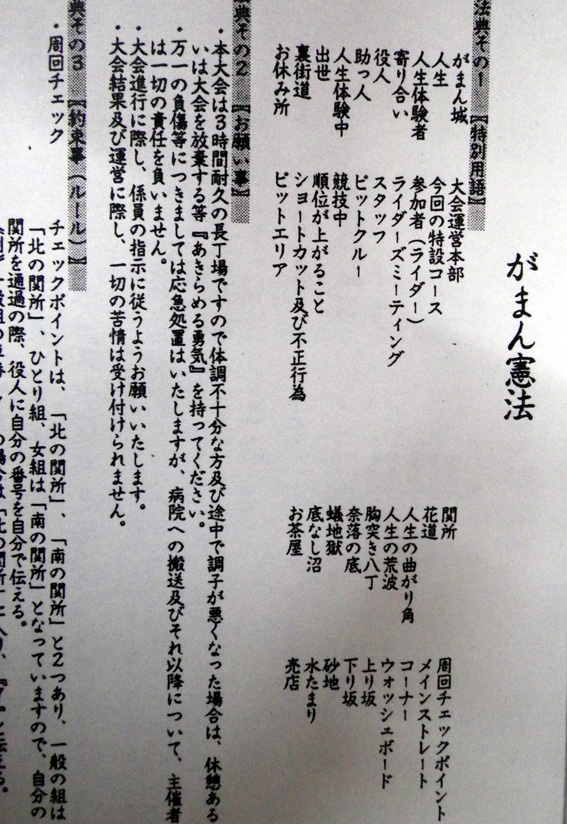 がまん憲法
法典その1 【特別用語】
がまん城 大会運営本部
人生 今回の特設コース
人生体験者 参加者(ライダー)
寄り合い ライダーズミーティング
役人 スタッフ
助っ人 ピットクルー
人生体験中 競技中
出世 順位が上がること
裏街道 ショートカット及び不正行為
お休み所 ピットエリア
関所 周回チェックポイント
花道 メインストレート
人生の曲がり角 コーナー
人生の荒波 ウォッシュボード
胸突き八丁 上り坂
奈落の底 下り坂
蟻地獄 砂地
底なし沼 水たまり
お茶屋 売店
典その2 【お願い事】
・本大会は3時間耐久の長丁場ですので体調不十分な方及び途中で調子が悪くなった場合は、休憩ある
いは大会を放棄する等『あきらめる勇気』を持ってください。
・万一の負傷等につきましては応急処置はいたしますが、病院への搬送及びそれ以降について、主催者
は一切の責任を負いません。
・大会進行に際し、係員の指示に従うようお願いいたします。
・大会結果及び運営に際し、一切の苦情は受け付けられません。
典その3 【約束事(ルール)】
・周回チェック チェックポイントは、「北の関所」、「南の関所」と2つあり、一般の組は
「北の関所」、ひとり組、女組は「南の関所」となっていますので、自分の
関所を通過の際、役人に自分の番号を自分で伝える。